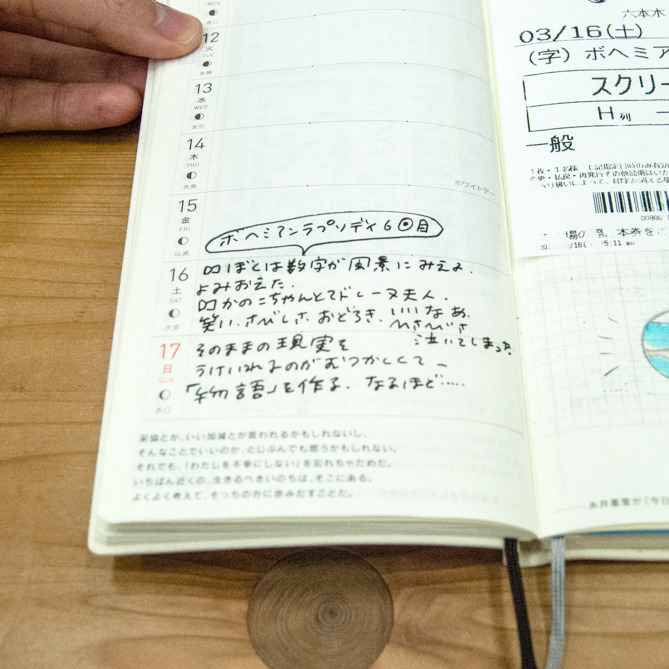 友引
12
火
TUE
先勝
13
水
WED
友引
14
木
THU
先負
ホワイトデー
15
金
FRI
仏滅
ボヘミアンラプソディ6回目
16
土
SAT
大安
ぼくは数字が風景にみえる。
よみおえた。
かのこちゃんとマドレーヌ夫人。
笑い、さびしさ、おどろき、いいなあ。
ひさびさ
泣いてしまった
17
日
SUN
赤口
そのままの現実を
うけいれるのがむつかしくて
「物語」を作る、なるほど.....
妥協とか、いい加減とか言われるかもしれないし、
そんなことでいいのか、とじぶんでも思うかもしれない。
それでも、「わたしを不幸にしない」を忘れちゃだめだ。
いちばん近くの、生きるべきいのちは、そこにある。
よくよく考えて、そっちの方に歩みだすことだ。
六本木
03/16(土)
(字) ボヘミア
スクリー
H列 一
一般
糸井重里が『今日